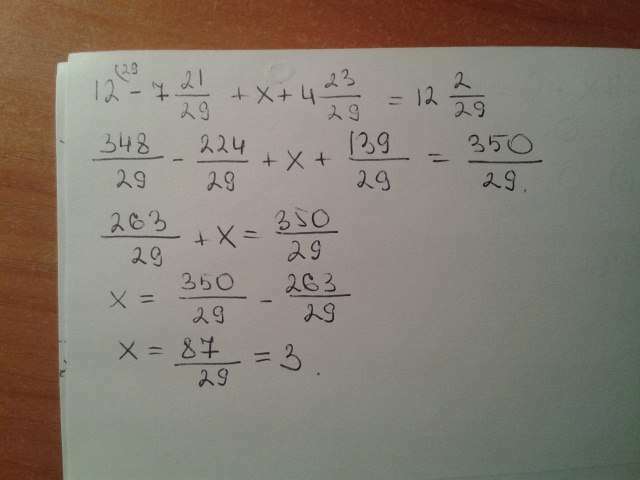 12^(29 - 7 21/29 + x + 4 23/29 = 12 2/29
348/29 - 224/29 + x + 139/29 = 350/29.
263/29 + x = 350/29
x = 350/29 - 263/29
x = 87/29 = 3.